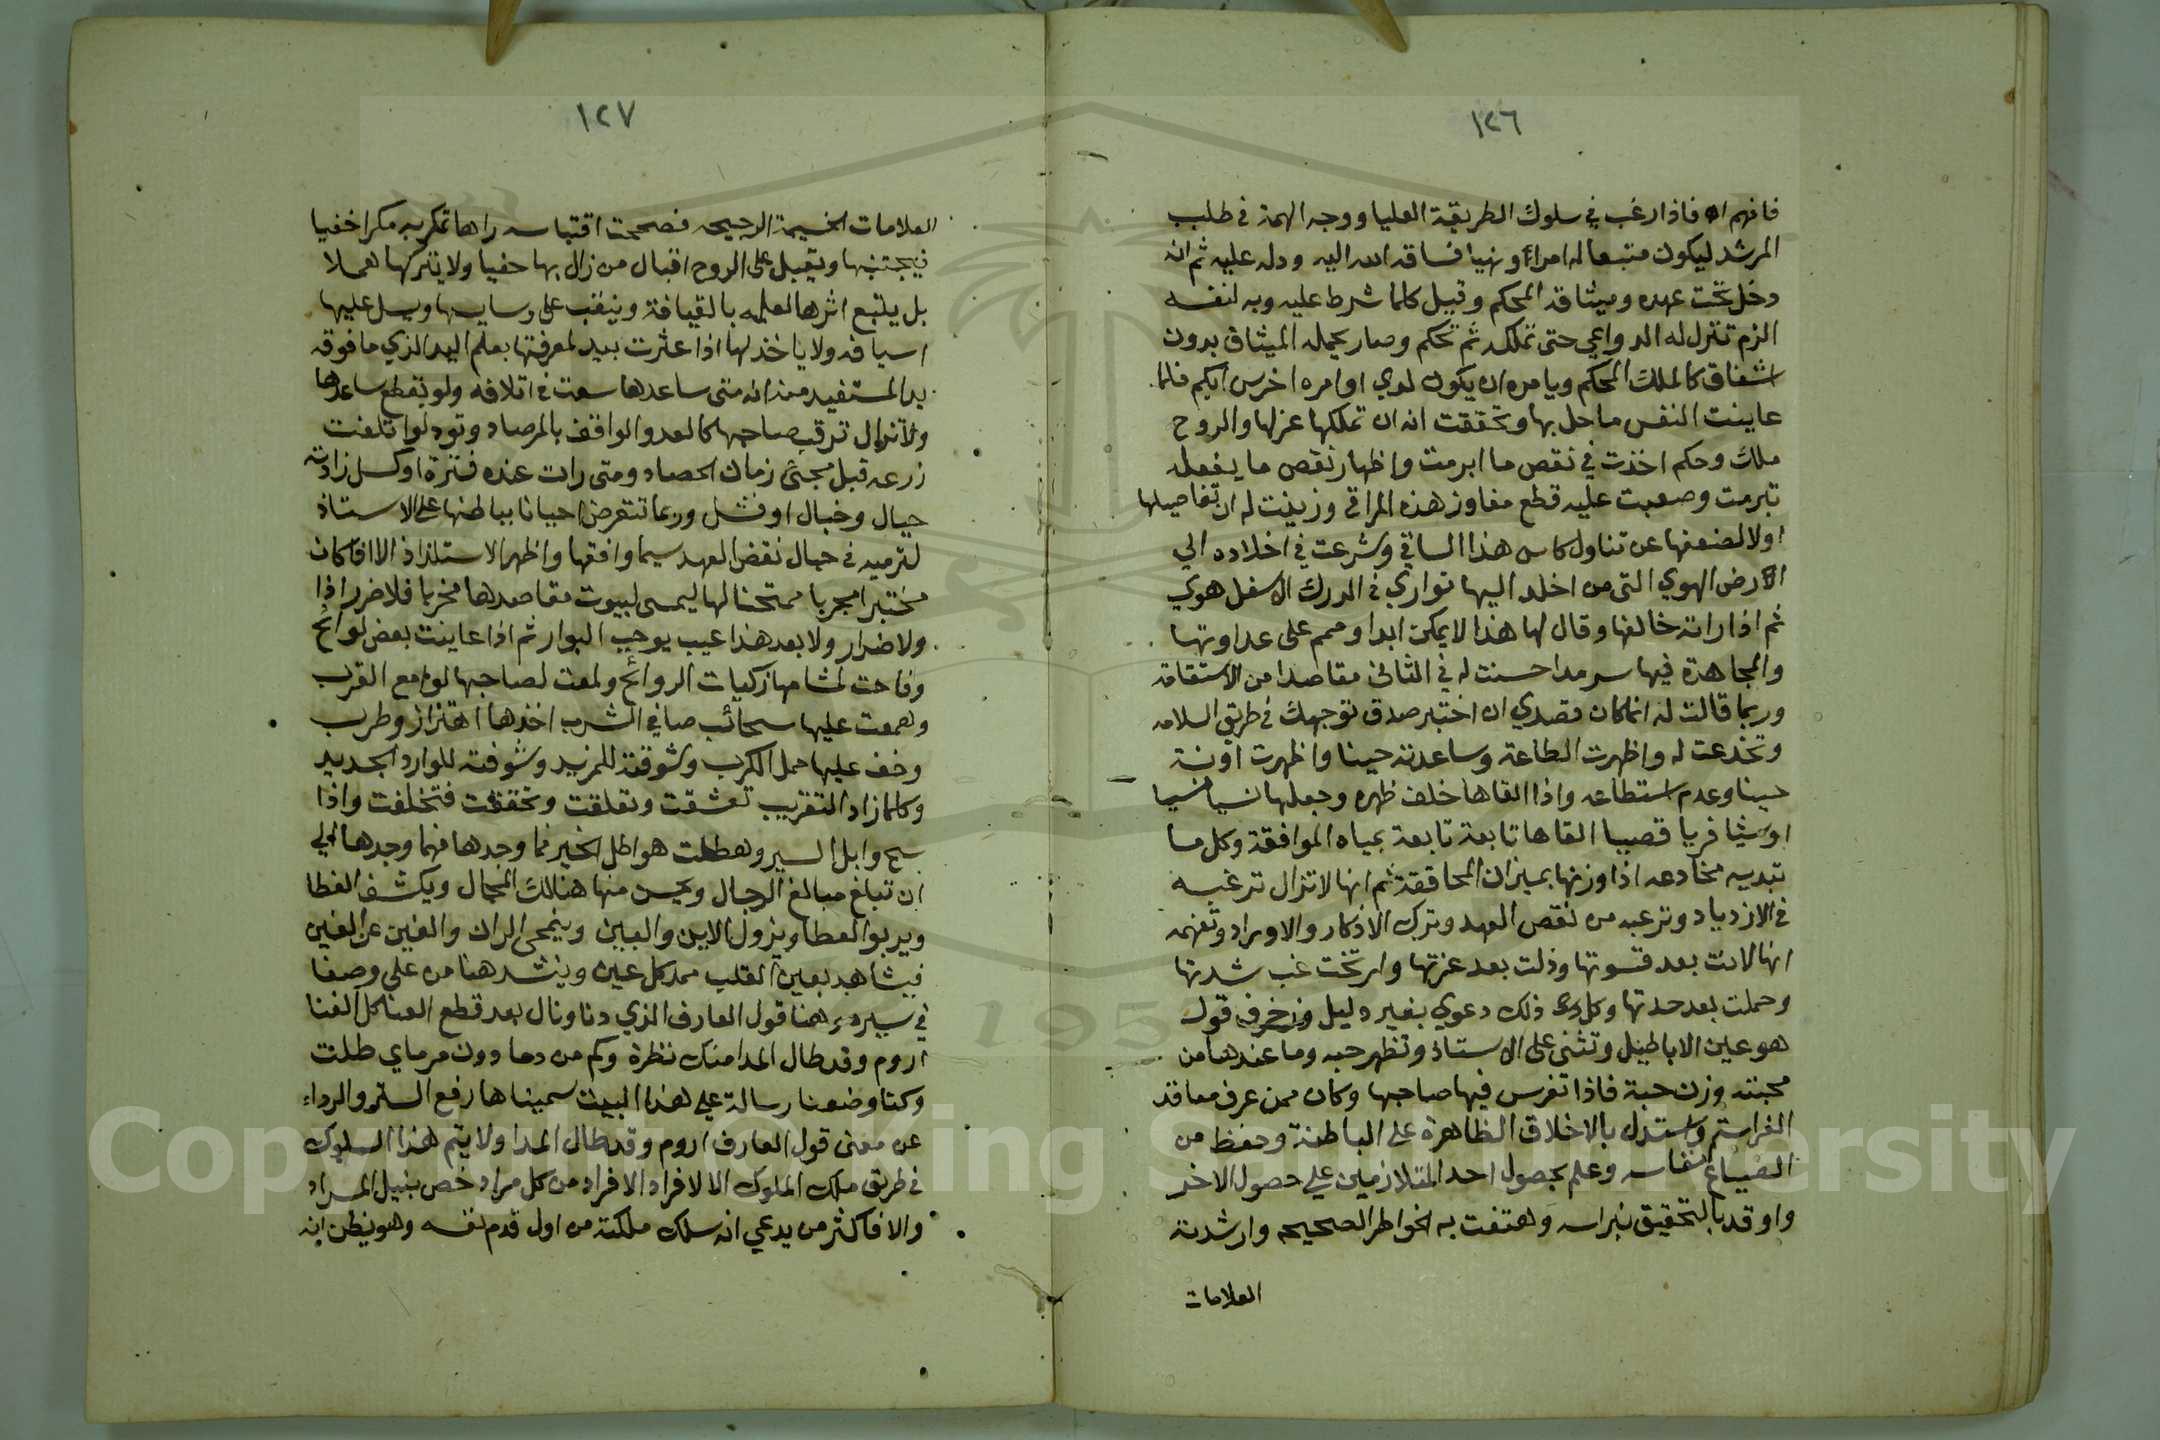 ١٢٦
فانهم اه فاذا رغب في سلوك الطريقة العليا ووجه الهمة في طلب
المرشد ليكون متبعا له امرا ونهيا فساقه الله اليه ودله عليه ثم انه
دخل تحت عهده وميثاقه المحكم وقبل كلما شرط عليه وبه لنفسه
الزم تنزل له الدواعي حتى تملك ثم تحكم وصار بحمله الميثاق بدون
اشفاق كالملك المحكم ويامره ان يكون لدي اوامره اخرس ابكم فلما
عاينت النفس ما حل بها وتحققت انه ان تملكها عزلها والروح
ملك وحكم اخذت في نقص ما ابرمت واظهار نقص ما يفعله
تبرمت وصعبت عليه قطع مفاوز هذه المراقي وزينت له ان تفاصيلها
اولا لضعفها عن تناول كاس هذا الساقي وشرعت في اخلاده الي
الارض الهوي التي من اخلد اليها تواري في الدرك الاسفل هوي
ثم اذا راته خالفها وقال لها هذا لا يمكن ابدا وصمم على عداوتها
والمجاهدة فيها سرمدا حسنت له في الثاني مقاصدا من الاستقاقة
وربما قالت له انما كان قصدي ان اختبر صدق توجهك في طريق السلامه
وتخدعت له واظهرت الطاعة وساعدته حينا واظهرت اونة
حينا وعدم استطاعه واذا القاها خلف ظهره وجعلها نسيا منسيا
او شيئا فريا قصيا القاها تابعة تابعة بمياه الموافقة وكل ما
تبديه مخادعه اذا وزنها بميزان المحاققة ثم انها لا تزال ترغبه
في الازدياد وترعبه من نقص العهد وترك الاذكار والاوراد وتفهمه
انها لانت بعد قسوتها وذلت بعد عزتها وارتخت غب شدتها
وحملت بعد حدتها وكل ذلك دعوي بغير دليل وزخرف قول
هو عين الاباطيل وتثني على الاستاذ وتظهر حبه وما عندها من
محبته وزن حبة فاذا تفرس فيها صاحبها وكان ممن عرف معاقد
الفراسة واستدل بالاخلاق الظاهرة على الباطنة وحفظ من
الضياع انفاسه وعلم بحصول احد المتلازمين علي حصول الاخر
واوقد بالتحقيق نبراسه وهتفت به الخواطر الصحيحه وارشدته
العلامات
١٢٧
العلامات الرجيحه فصححت اقتباسه راها تمكر به مكرا خفيا
فيجتنبها ويقبل على الروح اقبال من زال بها حفيا ولا يتركها هملا
بل يتبع اثرها لعلمه بالقيافة وينقب على دسايسها ويسل عليها
اسيافه ولا ياخذ لها اذا عثرت بيد لمعرفتها بعلم اليد الذي ما فوقه
يد المستفيد منه انه متى ساعدها سعت في اتلافه ولو بقطع ساعدها
ولا تزال ترقب صاحبها كالعدو الواقف بالمرصاد وتود لو اتلفت
زرعه قبل مجئ زمان الحصاد ومتى رات عنده فترة او كسل زادته
خيال وخبال او فشل وربما تتعرض احيانا بباطنها علي الاستاذ
لترميه في حبال نقض العهد سيما وافقها واظهر الاستلذاذ الا اذا كان
مختبرا مجربا ممتحنا لها ليمسى لبيوت مقاصدها مخربا فلا ضرر اذا
ولا ضرار ولا بعد هذا عيب يوجب البوار ثم اذا عاينت بعض لوائح
وفاحت لمشامها زكيات الروائح ولمعت لصاحبها لوامع القرب
وهمعت عليها سحائب صافي الشرب اخذها اهتزاز وطرب
وخف عليها حمل الكرب وشوقته للمزيد وشوفته للوارد الجديد
وكلما زاد التقريب تعشقت وتعلقت وتحققت فتخلفت واذا
سح وابل السير وهطلت هواطل الخير فما وجدها فهما وجدها الي
ان تبلغ مبالغ الرجال ويحسن منها هنالك المجال ويكشف الغطا
ويربو العطا ويزول الاين والبين وينمحى الران والغين عن العين
فيشاهد بعين القلب ممد كل عين وينشد هنا من علي وصفا
في سيره هنا قول العارف الذي دنا ونال بعد قطع العنا كل الغنا
اروم وقد طال المدا منك نظرة وكم من دما دون مرماي طلت
وكنا وضعنا رسالة علي هذا البيت سميناها رفع الستر والرداء
عن معنى قول العارف اروم وقد طال المدا ولا يتم هذا السلوك
في طريق ملك الملوك الا لافراد الافراد من كل مراد خص بنيل المراد
والا فاكثر من يدعي انه سلك ملكته من اول قدم نفسه وهو يظن انه
Copyright © King Saud University
195